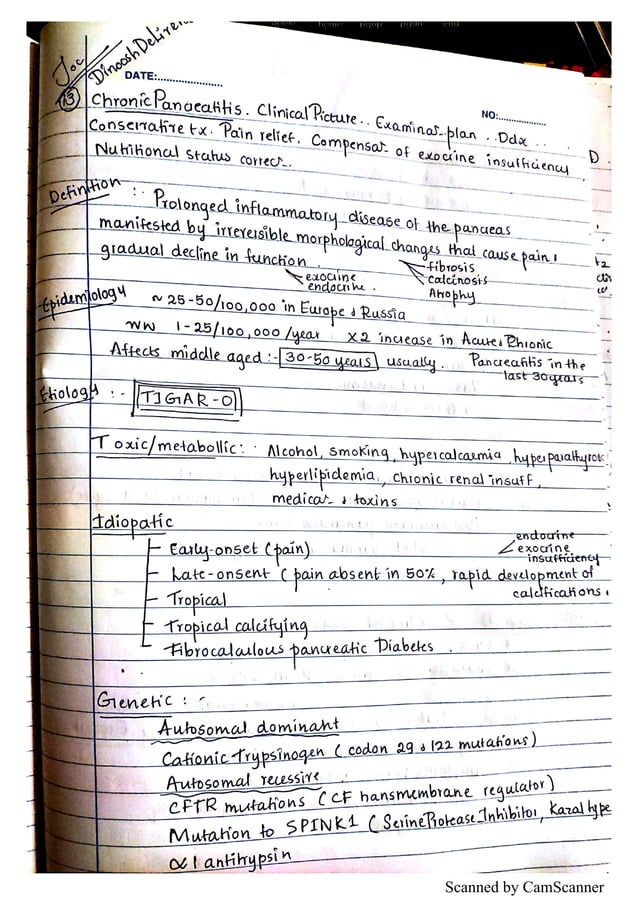 Joc
Dinoosh Delivera
DATE:......................
NO:................
(13) Chronic Pancreatitis. Clinical Picture.. Examinas plan.. Ddx...
Conservative tx. Pain relief. Compensas of exocrine insufficiency
Nutritional status correcs..
D
Definition :- Prolonged inflammatory disease of the pancreas
manifested by irreversible morphological changes that cause pain &
gradual decline in function.
exocrine
endocrine.
fibrosis
calcinosis
Atrophy
Epidemiology ~ 25-50/100,000 in Europe & Russia
WW 1-25/100,000/year x2 increase in Acute & Chronic
Affects middle aged :- 30-50 years usually. Pancreatitis in the
last 30 years
Etiology :- TIGAR-O
Toxic/metabollic: Alcohol, smoking, hypercalcaemia, hyperparathyroi
hyperlipidemia, chronic renal insuff,
medicas & toxins
Idiopatic
endocrine
exocrine
insufficiency
Early-onset (pain)
Late-onsent (pain absent in 50%, rapid development of
calcifications.
Tropical
Tropical calcifying
Fibrocalculous pancreatic Diabetes.
Genetic : -
Autosomal dominant
Cationic Trypsinogen (codon 29 & 122 mutations)
Autosomal recessive
CFTR mutations (CF transmembrane regulator)
Mutation to SPINK1 (Serine Protease Inhibitor, Kazal type
α1 antitrypsin
Scanned by CamScanner